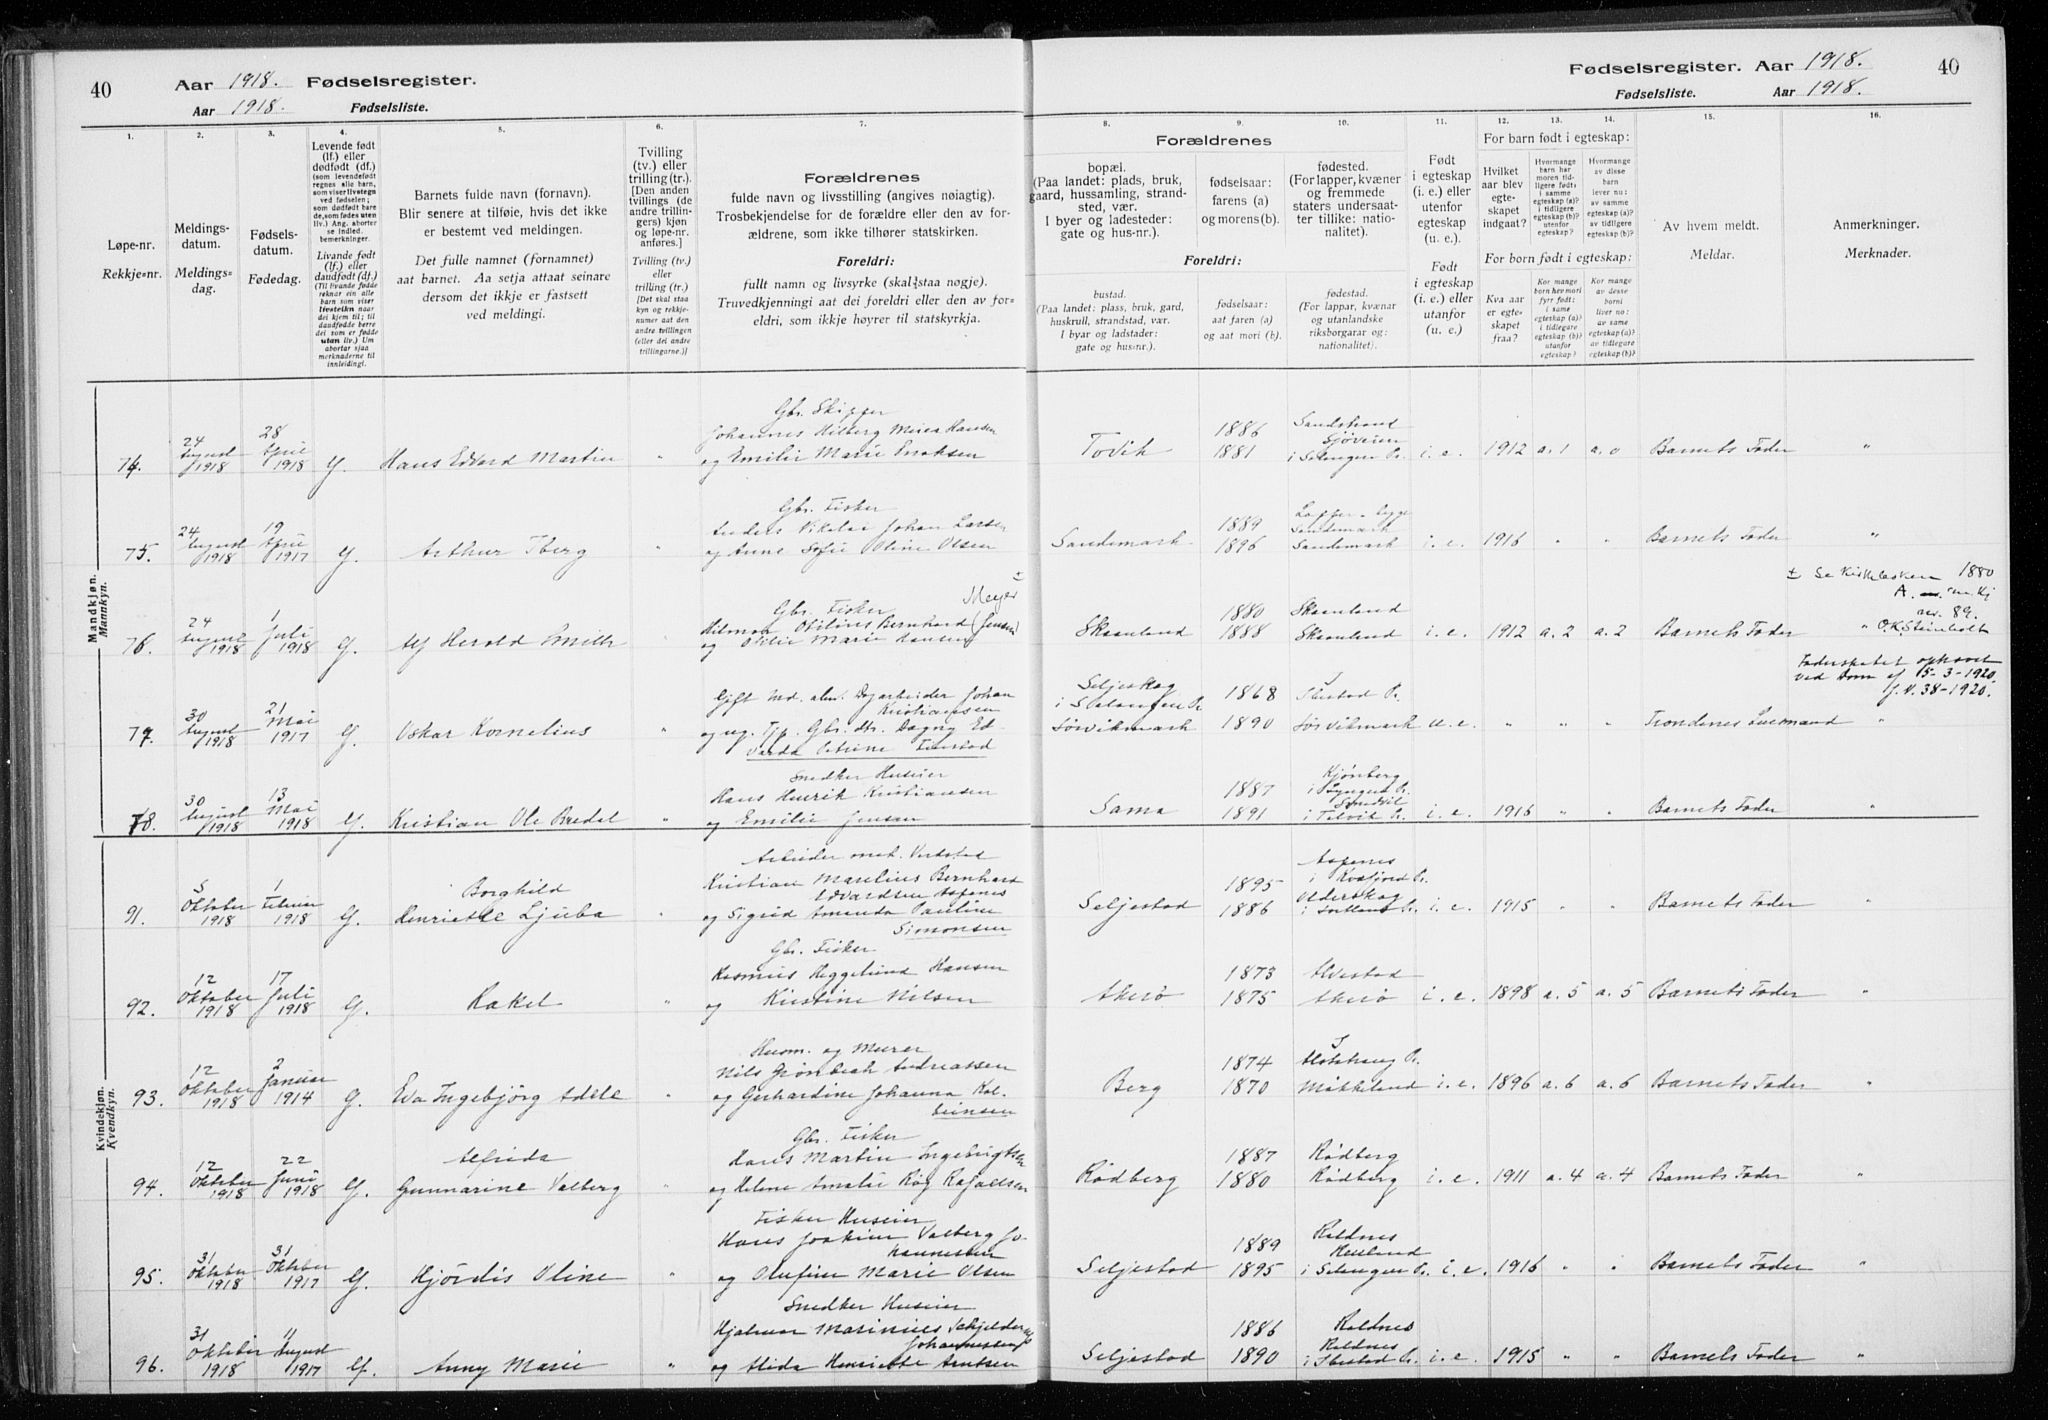 40
Aar 1918. Fødselsregister.
Aar 1918. Fødselsliste.
Fødselsregister. Aar 1918.
Fødselsliste. Aar 1918.
40
1.
Løpe-nr.
Rekkje-nr.
2.
Meldings-
datum.
Meldings-
dag.
3.
Fødsels-
datum.
Fødedag.
4.
Levende født
(lf.) eller
dødfødt (df.)
(som levendefødt
regnes alle barn,
som viser livstegn
ved fødselen;
som dødfødt bar-
de, som fødes uten
liv.) Ang. aborter
se indled.
bemerkninger.
Livande født
(lf.) eller
daudfødt (df.)
(Til livande fødde
reknar ein alle
barn som viser
livsteikn naar
dei kjem til; til
daudfødde berre
dei som er fødde
utan liv.) Um
abortar sjaa
merknaderne til
innleiding!.
5.
Barnets fulde navn (fornavn).
Blir senere at tilføie, hvis det ikke
er bestemt ved meldingen.
Det fulle namnet (fornamnet)
aat barnet. Aa setja attaat seinare
dersom det ikkje er fastsett
ved meldingi.
6.
Tvilling
(tv.) eller
trilling (tr.).
[Den anden
tvillings (de
andre trillin-
gers) kjøn
og løpe-nr.
anføres.]
Tvilling (tv.)
eller
trilling (tr.)
[Det skal staa
kyn og rekkje-
numer aat den
andre tvillingen
(eller dei andre
trillingarne.)]
7.
Forældrenes
fulde navn og livsstilling (angives nøiagtig).
Trosbekjendelse for de forældre eller den av for-
ældrene, som ikke tilhører statskirken.
Foreldri:
fullt namn og livsyrke (skal staa nøgje).
Truvedkjenningi aat dei foreldri eller den av for-
eldri, som ikkje høyrer til statskyrkja.
Forældrenes
8.
bopæl.
(Paa landet: plads, bruk,
gaard, hussamling, strand-
sted, vær.
I byer og ladesteder:
gate og hus-nr.).
9.
fødselsaar:
farens (a)
og morens (b).
10.
fødested.
(For lapper, kvæner
og fremmede
staters undersaat-
ter tillike: natio-
nalitet).
Foreldri:
bustad.
(Paa landet: plass, bruk, gard,
huskrull, strandstad, vær.
I byar og ladstader:
gate og hus-nr.).
fødselsaar:
aat faren (a)
og aat mori (b).
fødestad.
(For lappar, kvænar
og utanlandske
riksborgarar og:
nationalitet).
11.
Født
i egteskap
(i. e.) eller
utenfor
egteskap
(u. e.).
Født
i egteskap
(i. e.) eller
utanfor
(u. e.)
12. 13. 14.
For barn født i egteskap:
Hvilket
aar blev
egte-
skapet
indgaat?
Hvormange
barn har
moren tid-
ligere født:
i samme
egteskap (a)?
i tidligere
egteskap (b)?
utenfor
egteskap?
Hvormange
av disse
barn
lever nu:
av samme
egteskap (a)?
av tidligere
egteskap (b)?
For born født i egteskap:
Kva aar
er egte-
skapet
fraa?
Kor mange
born hev mori
fyrr født:
i same
egteskap (a)?
i tidlegare
egteskap (b)?
utanfor
egteskap?
Kor mange
av desse
borni
liver no:
av same
egteskap (a)?
av tidlegare
egteskap (b)?
15.
Av hvem meldt.
Meldar.
16.
Anmerkninger.
Merknader.
Mandkjøn.
Mannkyn.
74. 24 August 1918 28 April 1918 lf. Hans Edvard Martin "
Gbr. Skipper
Johannes Hilberg Meier Hansen
og Emilie Marie Enoksen
Tovik 1886 1881
Sandstrand
Sjøveien
i Salangen Pr. i. e. 1912 a. 1 a. 0 Barnets Fader "
75. 24 August 1918 19 April 1917 lf. Arthur Iberg "
Gbr. Fisker
Anders Nikolai Johan Larsen
og Anna Sofie Oline Olsen
Sandemark 1889 1896
Sandemark
Sandemark i. e. 1916 " " Barnets Fader "
76. 24 August 1918 1 Juli 1918 lf. Alf Herold Smith
Gbr. Fisker Meyer ±
Hilmar Otilius Bernhard (Jensen)
og Otilie Marie Hansen
Skaanland 1880 1888
Skaanland
Skaanland i. e. 1912 a. 2 a. 2 Barnets Fader "
± Se Kirkeboken 1880
A. m. kj
nr. 89.
O.K. Steinholt
77. 30 August 1918 21 Mai 1917 lf. Oskar Kornelius
Gift Md. alm. Dagarbeider Johan
Kristiansen
og ug. Tjp. Gbr. dtr. Dagny Ed-
varda Petrine
Seljeskog
i Salangen Pr.
Sørvikmark 1868 1890
I
Ibestad Pr.
Sørvikmark u. e. " " " Trondenes Lensmand "
Faderskapet ophævet
ved Dom af 15-3-1920.
J.N. 38-1920.
78. 30 August 1918 13 Mai 1918 lf. Kristian Ole Bredal "
Snedker Huseier
Hans Henrik Kristiansen
og Emilie Jensen
Sama 1887 1891
Kjønberg
i Lyngen Pr.
i Talvik Pr. i. e. 1916 " " Barnets Fader "
Kvindekjøn.
Kvendkyn.
91. 5 Oktober 1918 1 Februar 1918 lf. Borghild
Henriette Ljuba "
Arbeider mek. Verksted
Kristian Marelius Bernhard
Edvardsen Aspenes
og Sigrid Amanda Pauline
Simonsen
Seljestad 1895 1886
Aspenes
i Kvæfjord Pr.
i Sortland Pr. i. e. 1915 " " Barnets Fader "
92. 12 Oktober 1918 17 Juli 1918 lf. Rakel "
Gbr. Fisker
Rasmus Heggelund Hansen
og Kirstine Nilsen
Akerø 1873 1875
Alvestad
Akerø i. e. 1898 a. 5 a. 5 Barnets Fader "
93. 12 Oktober 1918 2 Januar 1914 lf. Eva Ingebjørg Adele "
Husm. og Murer
Nils Grønbech Andreassen
og Gerhardine Johanna Kol-
beinsen
Berg 1874 1870
I
Alstahaug Pr.
Miskeland i. e. 1896 a. 6 a. 6 Barnets Fader "
94. 12 Oktober 1918 22 Juni 1918 lf. Alfrida
Gunnarine Valberg "
Gbr. Fisker
Hans Martin Ingebrigtsen
og Helene Amalie Røg Rafaelsen
Rødberg 1887 1880
Rødberg
Rødberg i. e. 1911 a. 4 a. 4 Barnets Fader "
95. 31 Oktober 1918 31 Oktober 1917 lf. Hjørdis Oline "
Fisker Huseier
Hans Joakim Valberg Jo-
hannessen
og Olufine Marie Olsen
Seljestad 1889 1895
Roldnes
i Salangen Pr. i. e. 1916 " " Barnets Fader "
96. 31 Oktober 1918 11 August 1917 lf. Anny Marie "
Snedker Huseier
Hjalmar Marinius Schjelderup
Johannessen
og Alida Henriette Arntsen
Seljestad 1886 1890
Roldnes
Roldnes
i Ibestad Pr. i. e. 1915 " " Barnets Fader "